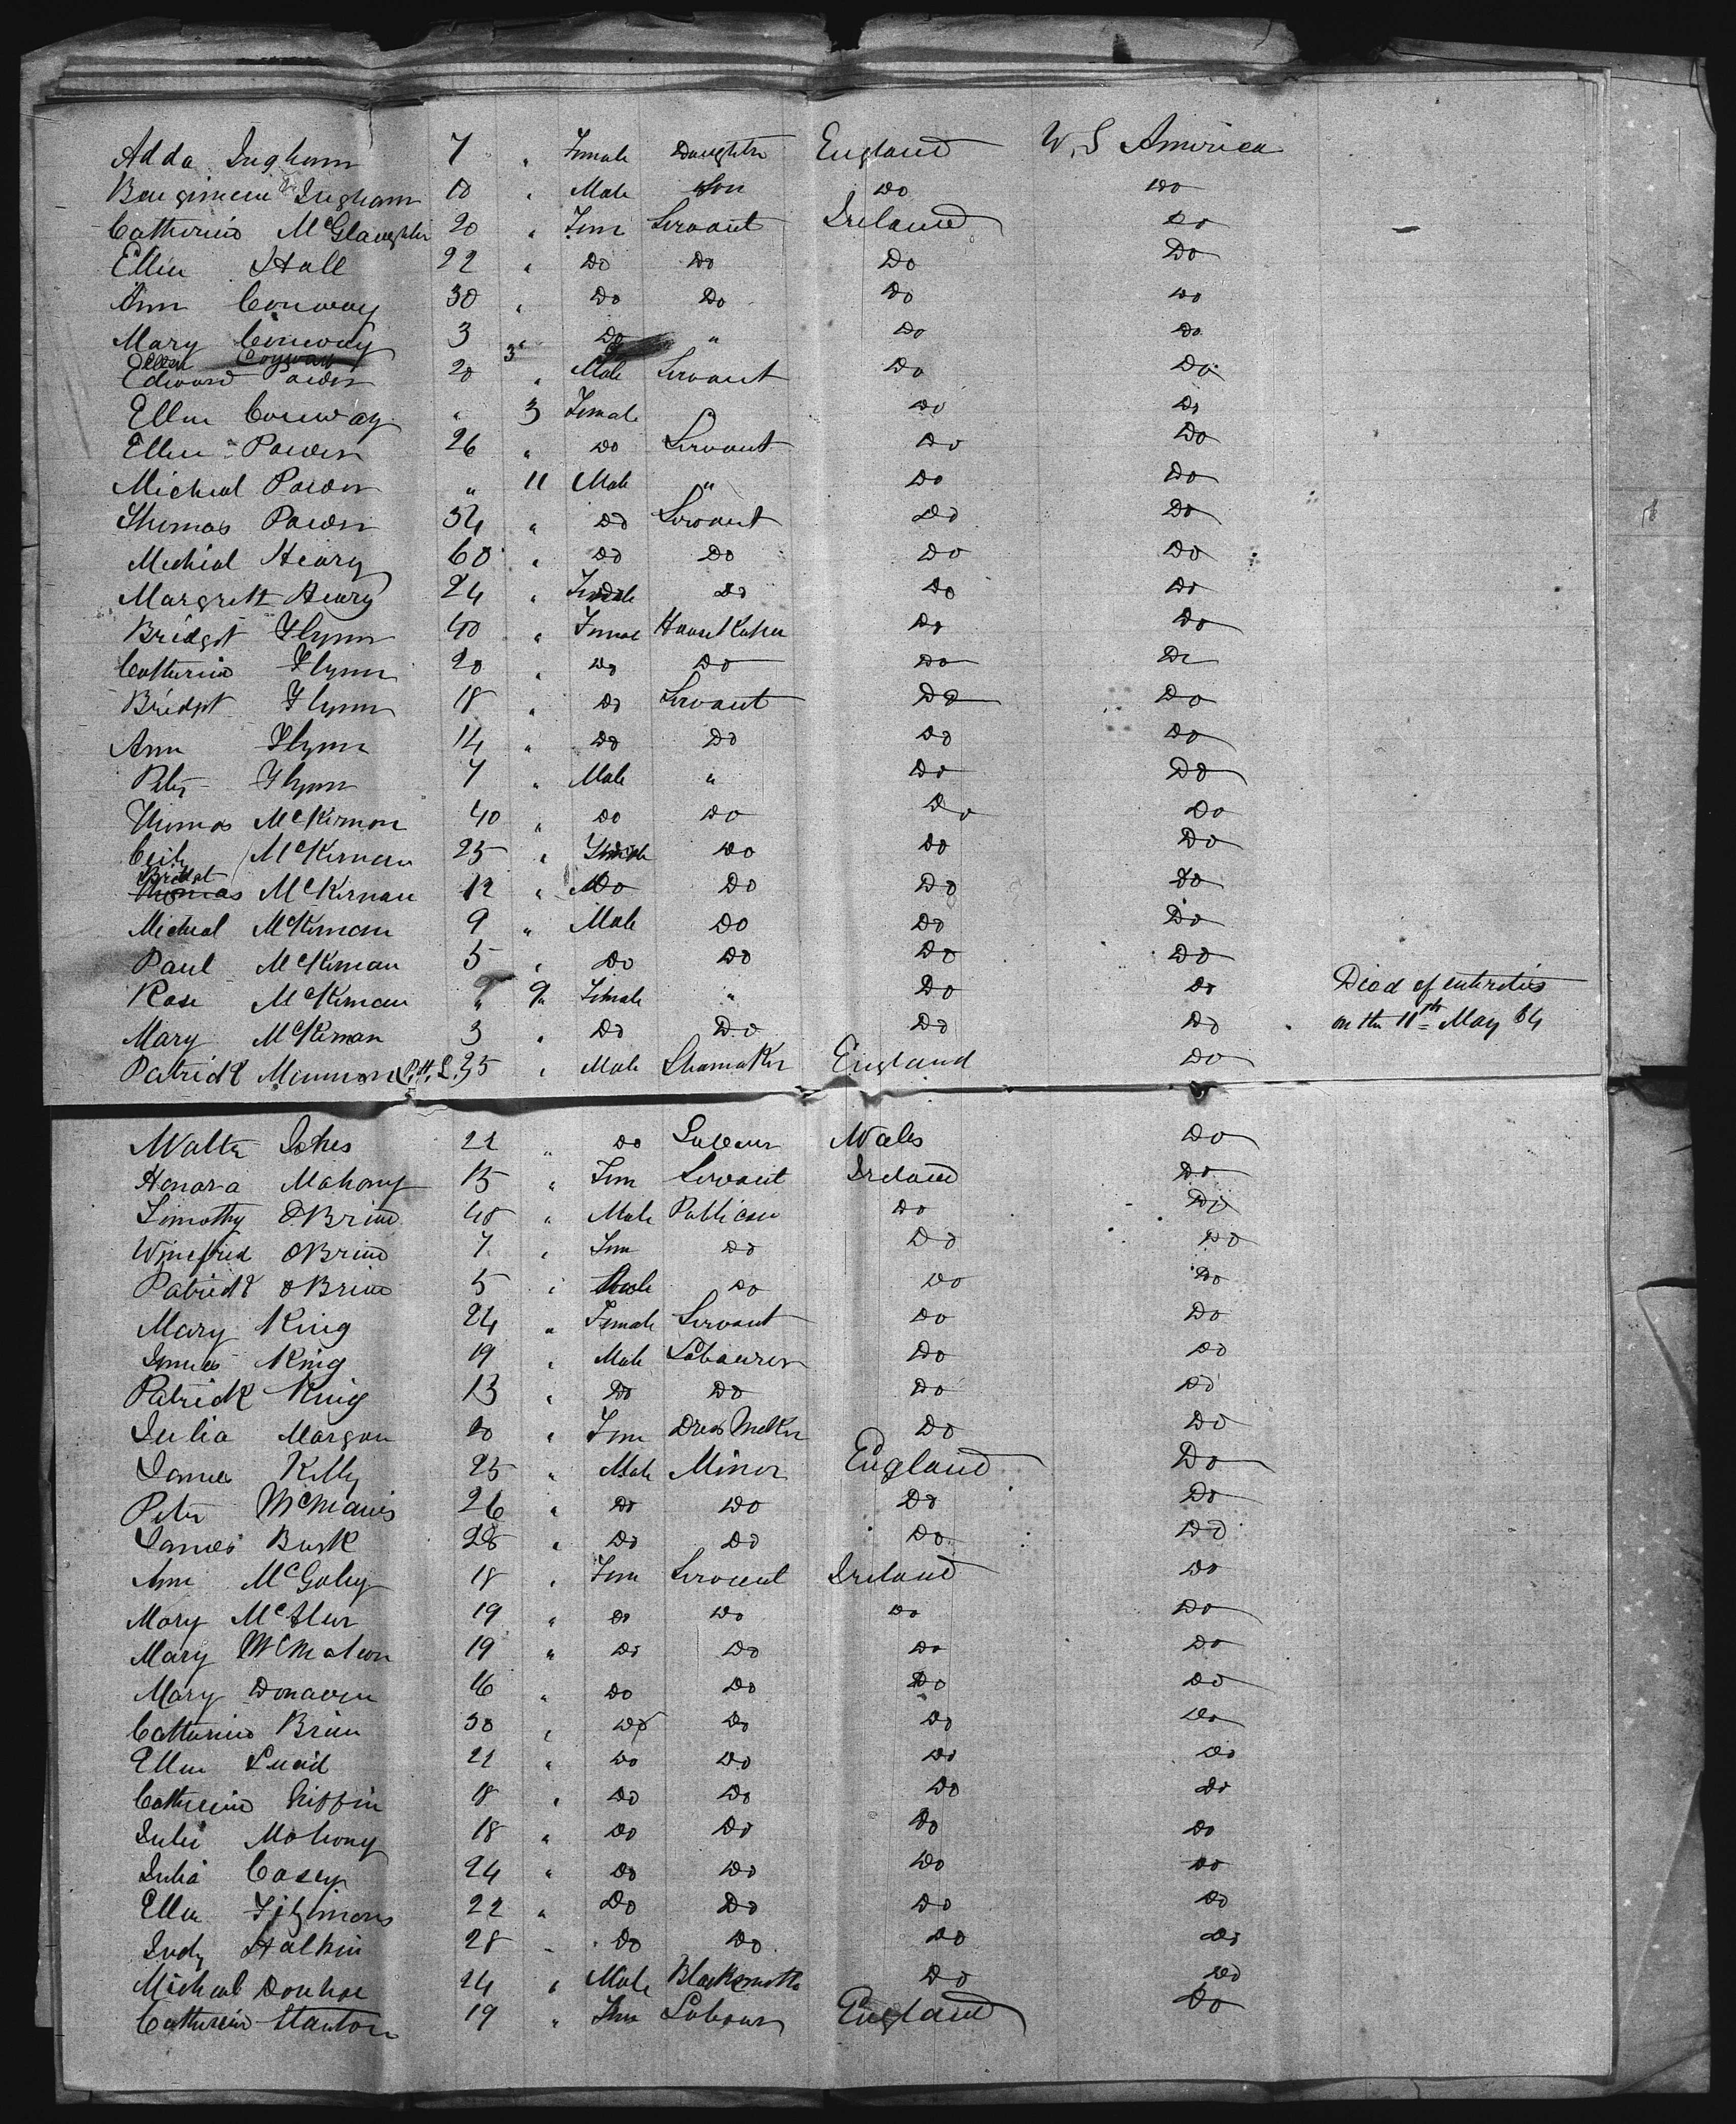 Adda Ingham 7 " Female Daughter England U.S America
Bengimein Ingham 10 " Male Son Do Do
Catherine McGlaughlin 20 " Fem Servant Ireland Do
Ellin Hall 22 " Do Do Do Do
Ann Conway 30 " Do Do Do Do
Mary Conway 3 " Do " Do Do
Ellen Conway 3
Edward Power 20 " Male Servant Do Do
Ellen Conway " 3 Female " Do Do
Ellen Power 26 " Do Servant Do Do
Micheal Power " 11 Male " Do Do
Thomas Power 34 " Do Servant Do Do
Michial Heary 60 " Do Do Do Do
Margrett Heary 24 " Female Do Do Do
Bridget Flynn 40 " Female House Keeper Do Do
Catherine Flynn 20 " Do Do Do Do
Bridget Flynn 18 " Do Servant Do Do
Ann Flynn 14 " Do Do Do Do
Peter Flynn 7 " Male " Do Do
Thomas McKernon 40 " Do Do Do Do
McKernan 25 " Female Do Do Do
Bridget
Thomas McKernan 12 " Do Do Do Do
Micheal McKernan 9 " Male Do Do Do
Paul McKernan 5 " Do Do Do Do
Rose McKernan " 9 Female " Do Do Died of enteritis
Mary McKernan 3 " Do Do Do Do on the 11th May 64
Patrick 35 " Male Shomaker England Do
Walter 22 " Do Labour Wales Do
Honora Mahony 15 " Fem Servant Ireland Do
Timothy OBrine 48 " Male Publican Do Do
Winefrid OBrine 7 " Fem Do Do Do
Patrick OBrine 5 " Male Do Do Do
Mary King 24 " Female Servant Do Do
James King 19 " Male Labourer Do Do
Patrick King 13 " Do Do Do Do
Julia Morgan 20 " Fem Dress Maker Do Do
James Kelly 25 " Male Minor England Do
Peter McManis 26 " Do Do Do Do
James Burk 28 " Do Do Do Do
Ann 18 " Fem Servant Ireland Do
Mary 19 " Do Do Do Do
Mary McMahon 19 " Do Do Do Do
Mary Donaven 16 " Do Do Do Do
Catherine Brien 30 " Do Do Do Do
Ellen 22 " Do Do Do Do
Catherine 18 " Do Do Do Do
Julia Mahony 18 " Do Do Do Do
Julia Casey 24 " Do Do Do Do
Ellen Fitzimons 22 " Do Do Do Do
Judy Halkin 28 " Do Do Do Do
Micheal Donhoe 24 " Male Blacksmith Do Do
Catherine Stanton 19 " Fem Labour England Do